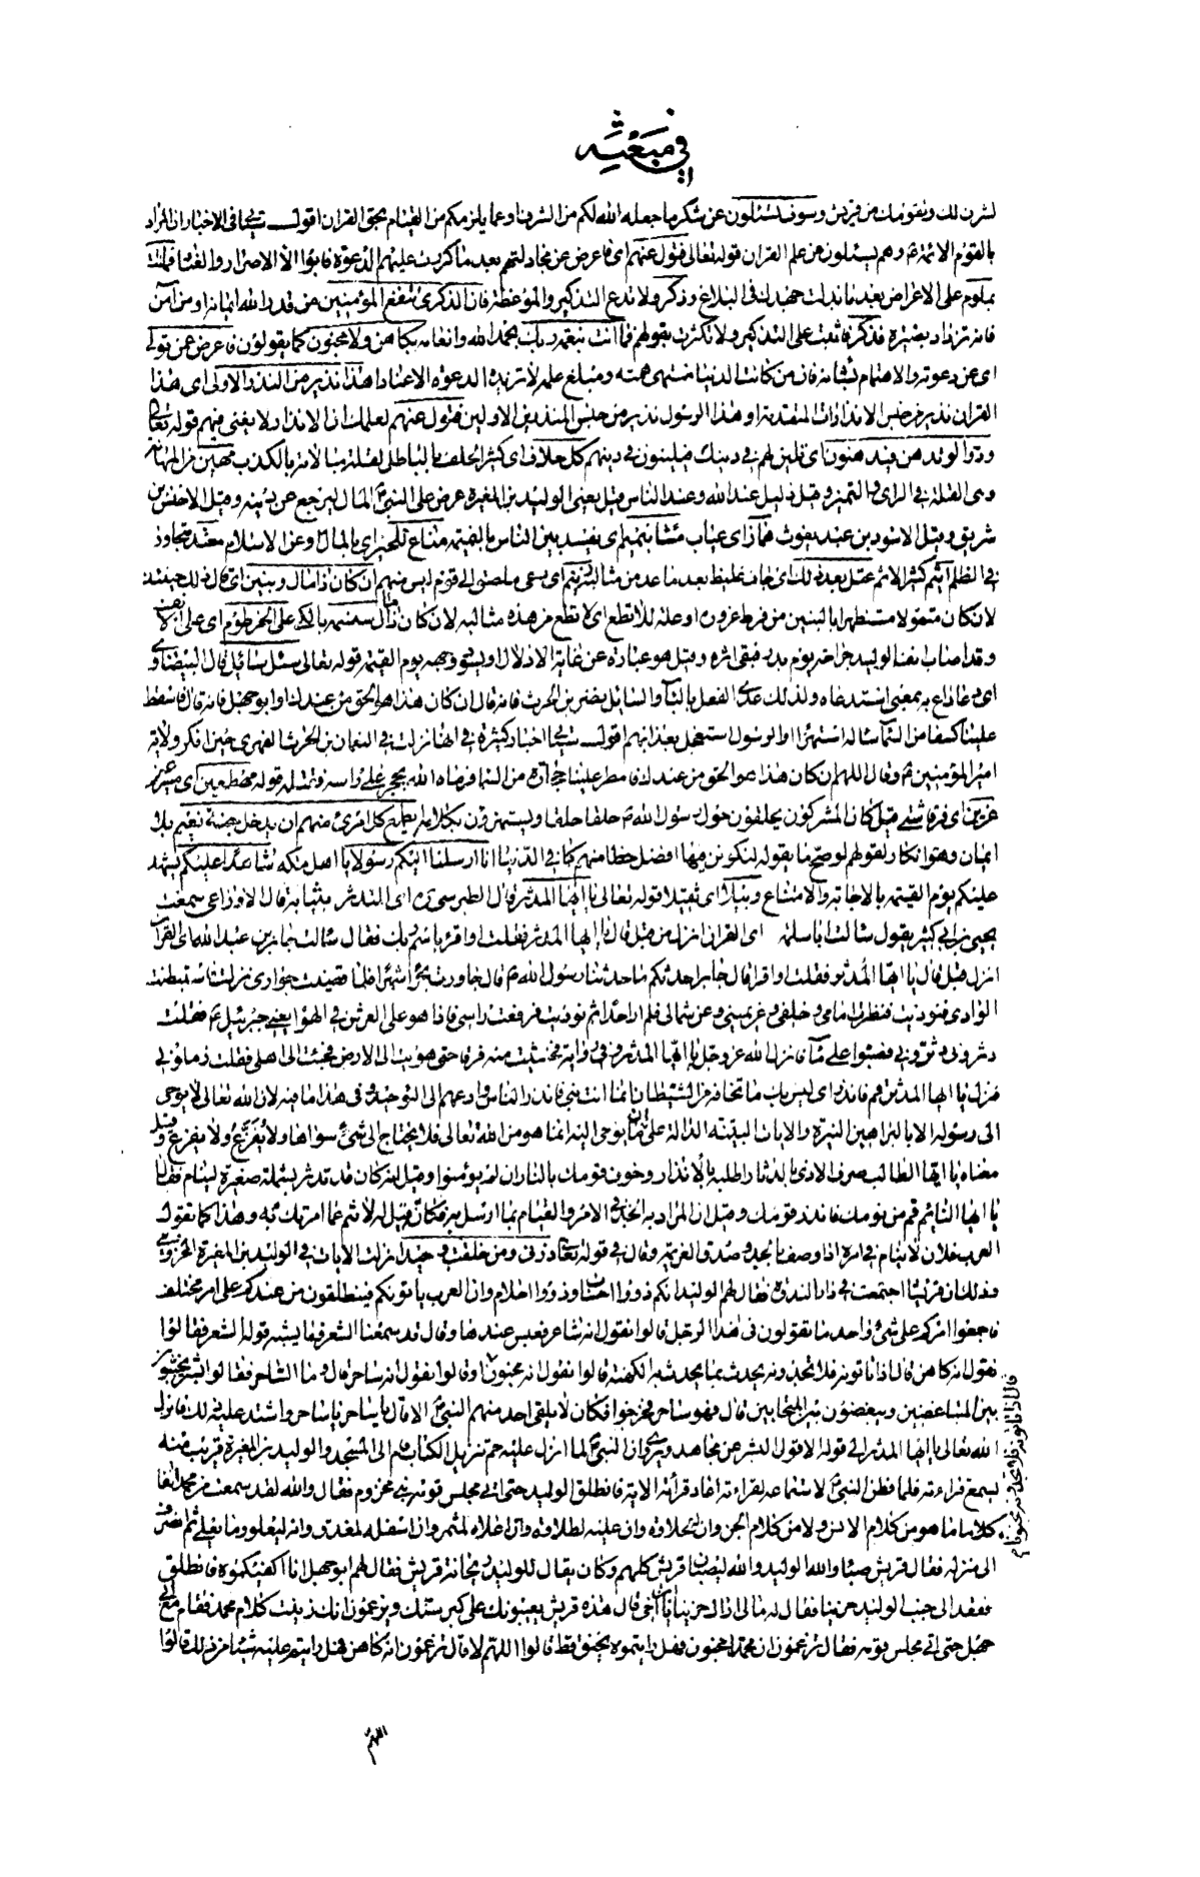 في مبعثه
لشرف لك ولقومك من قريش وسوف تسئلون عن شكر ما جعله الله لكم من الشرف او عما يلزمكم من القيام بحق القران اقول سيأتي في الاخبار ان المراد
بالقوم الائمة ع وهم يسئلون عن علم القران قوله تعالى فتول عنهم اى فاعرض عن مجادلتهم بعد ما كررت عليهم الدعوة فابوا الا الاصرار والعناد فما انت
بملوم على الاعراض بعد ما بذلت جهدك في البلاغ وذكر ولا تدع التذكير والموعظة فان الذكرى تنفع المؤمنين من قدر الله ايمانه او من آمن
فانه تزداد بصيرة فذكر فاثبت على التذكير ولا تكترث بقولهم فما انت بنعمة ربك بحمد الله وانعامه بكاهن ولا مجنون كما يقولون فاعرض عمن تولى
اى عن دعوته والاهتمام بشانه فان من كانت الدنيا منتهى همته ومبلغ علمه لا تزيده الدعوة الا عنادا هذا نذير من النذر الاولى اى هذا
القران نذير من جنس الانذارات المتقدمة او هذا الرسول نذير من جنس المنذرين الاولين فتول عنهم لعلمك ان الانذار لا يغني فيهم قوله تعالى
ودوا لو تدهن فيدهنون اى تلين لهم في دينك فيلينون في دينهم كل حلاف اى كثير الحلف بالباطل لقلة مبالاته بالكذب مهين من المهانة
وهي القلة في الراى والتميز وقيل ذليل عند الله وعند الناس قيل يعنى الوليد بن المغيرة عرض على النبي ص المال ليرجع عن دينه وقيل الاخنس بن
شريق وقيل الاسود بن عبد يغوث هماز اى عياب مشاء بنميم اى يفسد بين الناس بالنميمة مناع للخير اى بالمال او عن الاسلام معتد متجاوز
في الظلم اثيم كثير الاثم عتل بعد ذلك اى جاف غليظ بعد ما عد من مثالبه زنيم اى دعى ملصق الى قوم ليس منهم ان كان ذا مال وبنين اى قال ذلك حينئذ
لان كان متمولا مستظهرا بالبنين من فرط غروره او علة للاتطع اى لا تطع من هذه مثالبه لان كان ذا مال سنسمه بالكي على الخرطوم اى على الانف
وقد اصاب انف الوليد جراحة يوم بدر فبقى اثره وقيل هو عبارة عن غاية الاذلال او يسود وجهه يوم القيمة قوله تعالى سئل سائل قال البيضاوي
اى دعا داع به بمعنى استدعاه ولذلك عدى الفعل بالباء والسائل نضر بن الحرث فانه قال ان كان هذا هو الحق من عندك او ابو جهل فانه قال فاسقط
علينا كسفا من السماء ساله استهزاء او الرسول استعجل بعذابهم اقول سيأتي اخبار كثيرة في انها نزلت في النعمان بن الحرث الفهري حين انكر ولاية
امير المؤمنين ع وقال اللهم ان كان هذا هو الحق من عندك فامطر علينا حجارة من السماء فرماه الله بحجر على راسه وقتله قوله مهطعين اى مسرعين
عزين اى فرقا شتى قيل كان المشركون يحلقون حول رسول الله ص حلقا حلقا ويستهزؤن بكلامه ايطمع كل امرئ منهم ان يدخل جنة نعيم بلا
ايمان وهو انكار لقولهم لو صح ما يقوله لنكونن فيها افضل حظا منهم كما في الدنيا انا ارسلنا اليكم رسولا يا اهل مكة شاهدا عليكم يشهد
عليكم يوم القيمة بالاجابة والامتناع وبيلا اى ثقيلا قوله تعالى يا ايها المدثر قال الطبرسي ره اى المتدثر بثيابه قال الاوزاعى سمعت
يحيى بن ابي كثير يقول سالت ابا سلمة اى القران انزل من قبل قال يا ايها المدثر فقلت او اقرأ باسم ربك فقال سالت جابر بن عبد الله اى القران
انزل قبل قال يا ايها المدثر فقلت او اقرا قال جابر احدثكم ما حدثنا رسول الله ص قال جاورت بحراء شهرا فلما قضيت جوارى نزلت فاستبطنت
الوادى فنوديت فنظرت امامى وخلفى وعن يمينى وعن شمالى فلم ار احدا ثم نوديت فرفعت راسى فاذا هو على العرش في الهواء يعنى جبرئيل ع فقلت
دثرونى دثرونى فصبوا على ماء فانزل الله عز وجل يا ايها المدثر وفي رواية فخشيت منه فرقا حتى هويت الى الارض فجئت الى اهلى فقلت زملونى
فنزل يا ايها المدثر قم فانذر اى ليس بك ما تخافه من الشيطان انما انت نبى فانذر الناس وادعهم الى التوحيد وفي هذا ما فيه لان الله تعالى لا يوحى
الى رسوله الا بالبراهين النيرة والايات البينة الدالة على ان ما يوحى اليه انما هو من الله تعالى فلا يحتاج الى شئ سواها ولا يفزع ولا يفزع وقيل
معناه يا ايها الطالب صرف الاذى بالدثار اطلبه بالانذار وخوف قومك بالنار ان لم يؤمنوا وقيل انه كان قد تدثر بشملة صغيرة لينام فقال
يا ايها النائم قم من نومك فانذر قومك وقيل ان المراد به الجد في الامر والقيام بما ارسل به فكانه قيل له لا تنم عما امرتك به وهذا كما تقول
العرب فلان لا ينام في امره اذا وصف بالجد وصدق العزيمة وقال في قوله تعالى ذرنى ومن خلقت وحيدا نزلت الايات في الوليد بن المغيرة المخزومى
وذلك ان قريشا اجتمعت في دار الندوة فقال لهم الوليد انكم ذووا احساب وذووا احلام وان العرب ياتونكم فينطلقون من عندكم على امر مختلف
فاجمعوا امركم على شئ واحد ما تقولون في هذا الرجل قالوا نقول انه شاعر فعبس عندها وقال قد سمعنا الشعر فما يشبه قوله الشعر فقالوا
نقول انه كاهن قال اذا تاتونه فلا تجدونه يحدث بما يحدث به الكهنة قالوا نقول انه مجنون وقالوا نقول انه ساحر قال وما الساحر فقالوا بشر يحببون
بين المتباغضين ويبغضون بين المتحابين قال فهو ساحر فخرجوا فكان لا يلقى احد منهم النبي ص الا قال يا ساحر يا ساحر واشتد عليه ذلك فانزل
الله تعالى يا ايها المدثر الى قوله الا قول البشر عن مجاهد ويروى ان النبي ص لما انزل عليه حم تنزيل الكتاب قام الى المسجد والوليد بن المغيرة قريب منه
يسمع قراءته فلما فطن النبي ص لاستماعه لقراءته اعاد قرائة الاية فانطلق الوليد حتى اتى مجلس قومه بنى مخزوم فقال والله لقد سمعت من محمد انفا
كلاما ما هو من كلام الانس ولا من كلام الجن وان له لحلاوة وان عليه لطلاوة وان اعلاه لمثمر وان اسفله لمغدق وانه ليعلو وما يعلى ثم انصرف
الى منزله فقال قريش صبا والله الوليد والله ليصبان قريش كلهم وكان يقال للوليد ريحانة قريش فقال لهم ابو جهل انا اكفيكموه فانطلق
فقعد الى جنب الوليد حزينا فقال له مالى اراك حزينا يا بن اخى قال هذه قريش يعيبونك على كبر سنك ويزعمون انك زينت كلام محمد فقام مع ابى
جهل حتى اتى مجلس قومه فقال تزعمون ان محمدا مجنون فهل رايتموه يخنق قط قالوا اللهم لا قال تزعمون انه كاهن فهل رايتم عليه شيئا من ذلك قالوا
قال اذا تاتونه فلا تجدونه مجنونا م
اللهم